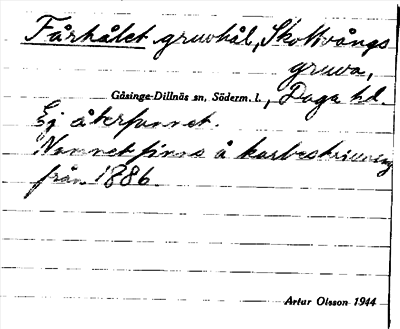 Fårhålet gruvhål, Skottvångs
gruva,
Gåsinge-Dillnäs sn, Söderm. l., Daga hd.
Ej återfunnet.
Namnet finns å kartbeskrivning
från 1886.
Artur Olsson 1944